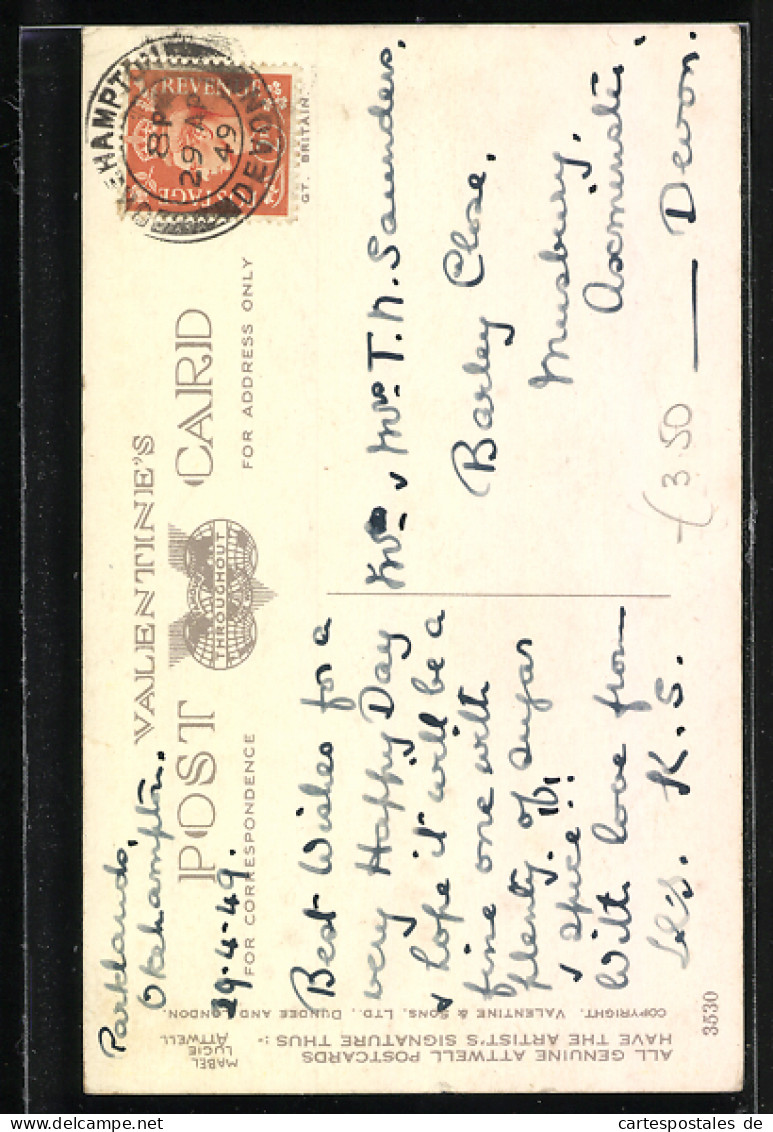 Parklands,
Okehampton.
29.4.49.
VALENTINE'S
POST CARD
THROUGHOUT
FOR CORRESPONDENCE
FOR ADDRESS ONLY
OKEHAMPTON
8 PM
29 AP
49
DEVON
REVENUE
POSTAGE
GT. BRITAIN
Best Wishes for a
very Happy Day
& hope it will be a
fine one with
plenty of sugar
& spice!!
With love from
K.S.
Mr & Mrs T. N. Saunders,
Barley Close,
Musbury,
Axminster.
Devon.
£3.50
ALL GENUINE ATTWELL POSTCARDS
HAVE THE ARTIST'S SIGNATURE THUS :-
MABEL
LUCIE
ATTWELL
COPYRIGHT, VALENTINE & SONS, LTD., DUNDEE AND LONDON.
3530
cartespostales de